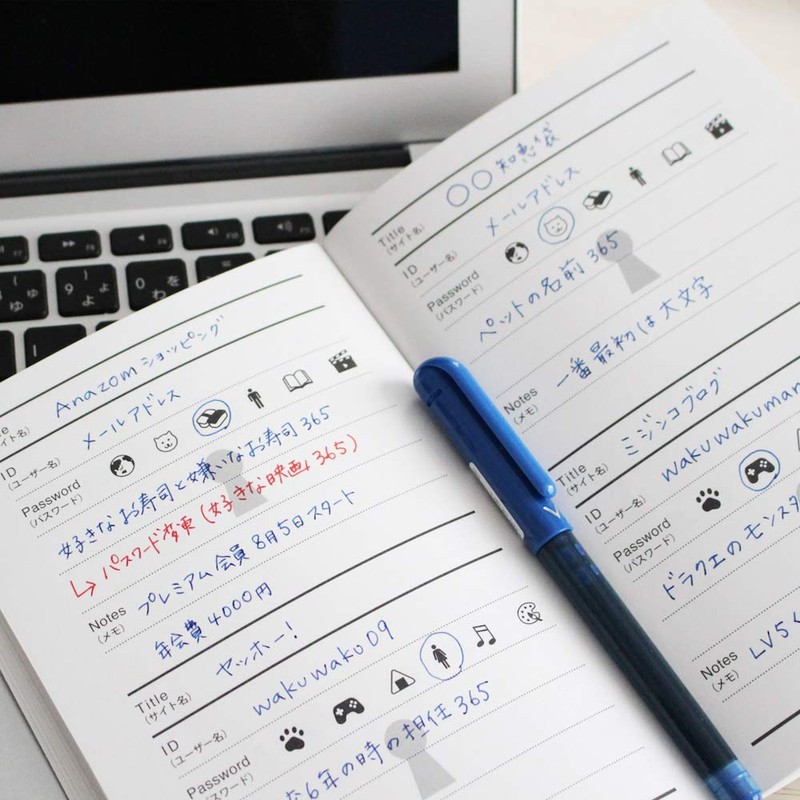 Anazom ショッピング
イト名)
メールアドレス
ID
(ユーザー名)
Password
(パスワード)
好きなお寿司と嫌いなお寿司365
↳パスワード変更(好きな映画+365)
Notes
(メモ)
プレミアム会員 8月5日スタート
年会費4000円
Title
(サイト名)
ヤッホー!
ID
(ユーザー名)
wakuwaku09
Password
(パスワード)
6年の時の担任365
Title
(サイト名)
○○知恵袋
ID
(ユーザー名)
メールアドレス
Password
(パスワード)
ペットの名前365
一番最初は大文字
Notes
(メモ)
Title
(サイト名)
ミジンコブログ
ID
(ユーザー名)
wakuwakuman
Password
(パスワード)
ドラクエのモンスタ
Notes
(メモ)
LV5く